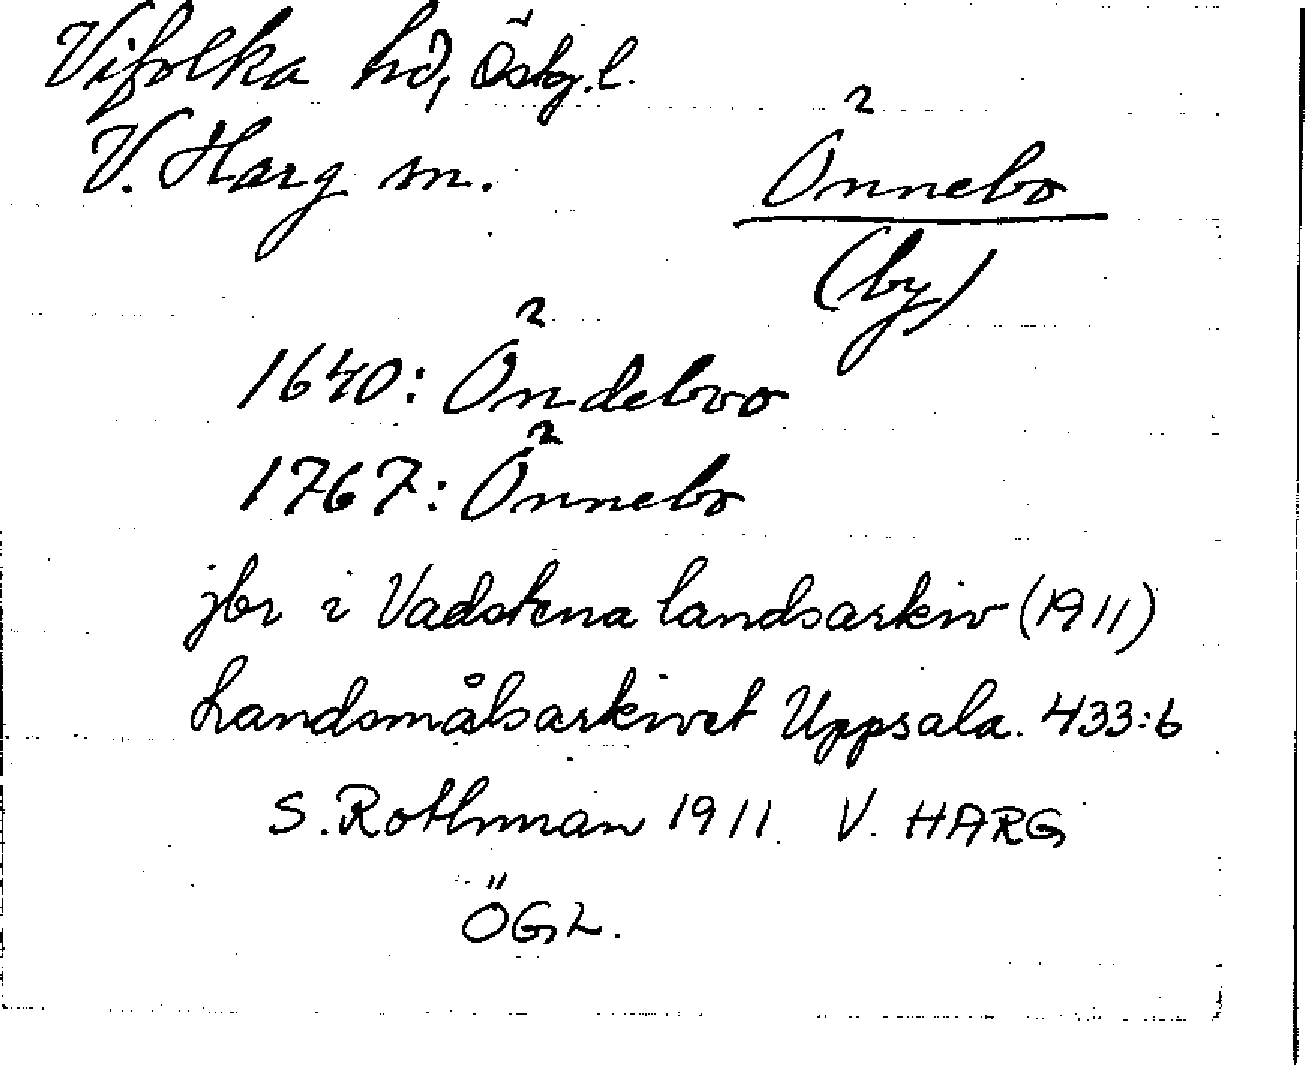 Vifolka hd, Östg.l.
V. Harg sn.
Önnebo
(by)
1640: Öndeboo
1767: Önnebo
jbr i Vadstena landsarkiv (1911)
Landsmålsarkivet Uppsala. 433:6
S. Rothman 1911 V. HARG
ÖGL.